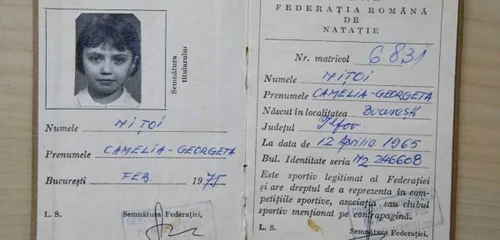 Semnătura
titularului
Numele MIȚOI
Prenumele CAMELIA-GEORGETA
București FEB. 1975
L. S. Semnătura Federației,
FEDERAȚIA ROMÂNĂ
DE
NATAȚIE
Nr. matricol 6831
Numele MIȚOI
Prenumele CAMELIA-GEORGETA
Născut în localitatea București
Județul Ilfov
La data de 12 Aprilie 1965
Bul. Identitate seria 246608
Este sportiv legitimat al Federației
și are dreptul de a reprezenta în com-
petițiile sportive, asociația sau clubul
sportiv menționat pe contrapagină.
L. S. Semnătura Federației,